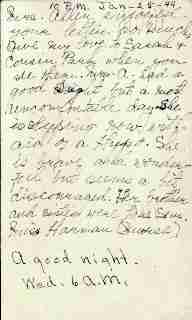 10 P.M. Jan-25-44.
Mrs. Allen enjoyed
your letter so much
Give my love to Sarah &
Cousin Party when you
see them. Mrs. A. had a
good night but a most
uncomfortable day. She
is sleeping now with
aid of a Hypo. She
is brave and wonder-
ful but seems a bit
discouraged. Her brother
and sister were here
Miss Harman (Nurse)
A good night.
Wed. 6 A.M.